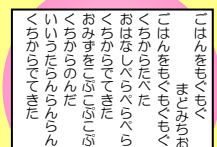 ごはんをもぐもぐ
まどみちお
ごはんをもぐもぐもぐ
くちからたべた
おはなしぺらぺらぺら
くちからでてきた
おみずをごぶごぶごぶ
くちからのんだ
いいうたらんらんらん
くちからでてきた